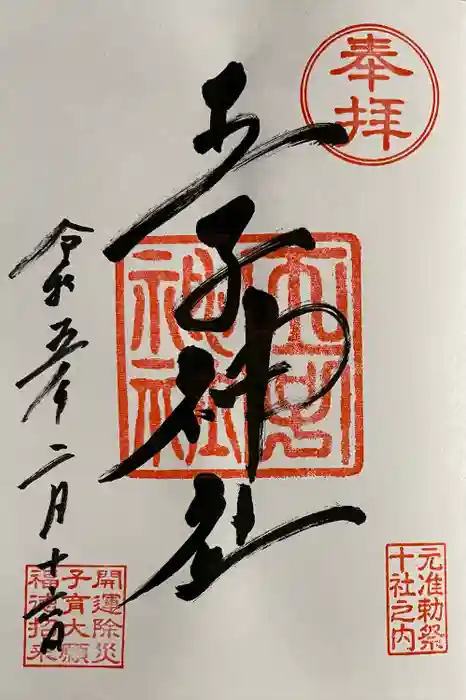 奉拝
王子神社
王子
神社
元准勅祭
十社之内
令和五年二月十六日
開運除災
子育大願
福徳招来